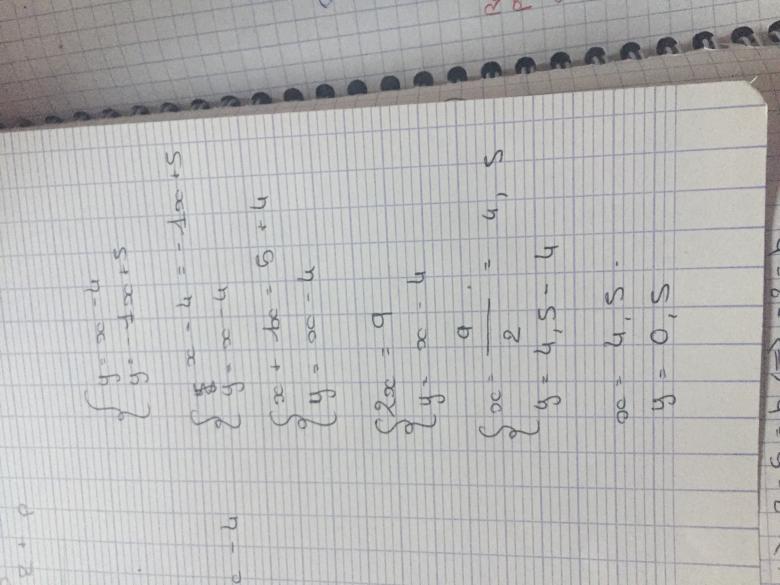 { y = x - 4
y = - 1x + 5
{ x - 4 = - 1x + 5
y = x - 4
{ x + 1x = 5 + 4
y = x - 4
{ 2x = 9
y = x - 4
{ x = 9/2 = 4,5
y = 4,5 - 4
x = 4,5.
y = 0,5